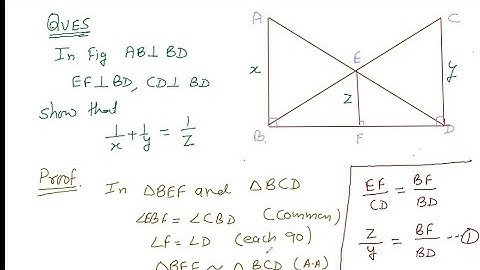 QUES
In Fig AB⊥BD
EF⊥BD, CD⊥BD
Show that
1/x + 1/y = 1/z
A
C
E
x
z
y
B
F
D
Proof.
In △BEF and △BCD
∠EBF = ∠CBD (Common)
∠F = ∠D (each 90)
△BEF ~ △BCD (A-A)
EF/CD = BF/BD
z/y = BF/BD --- ①